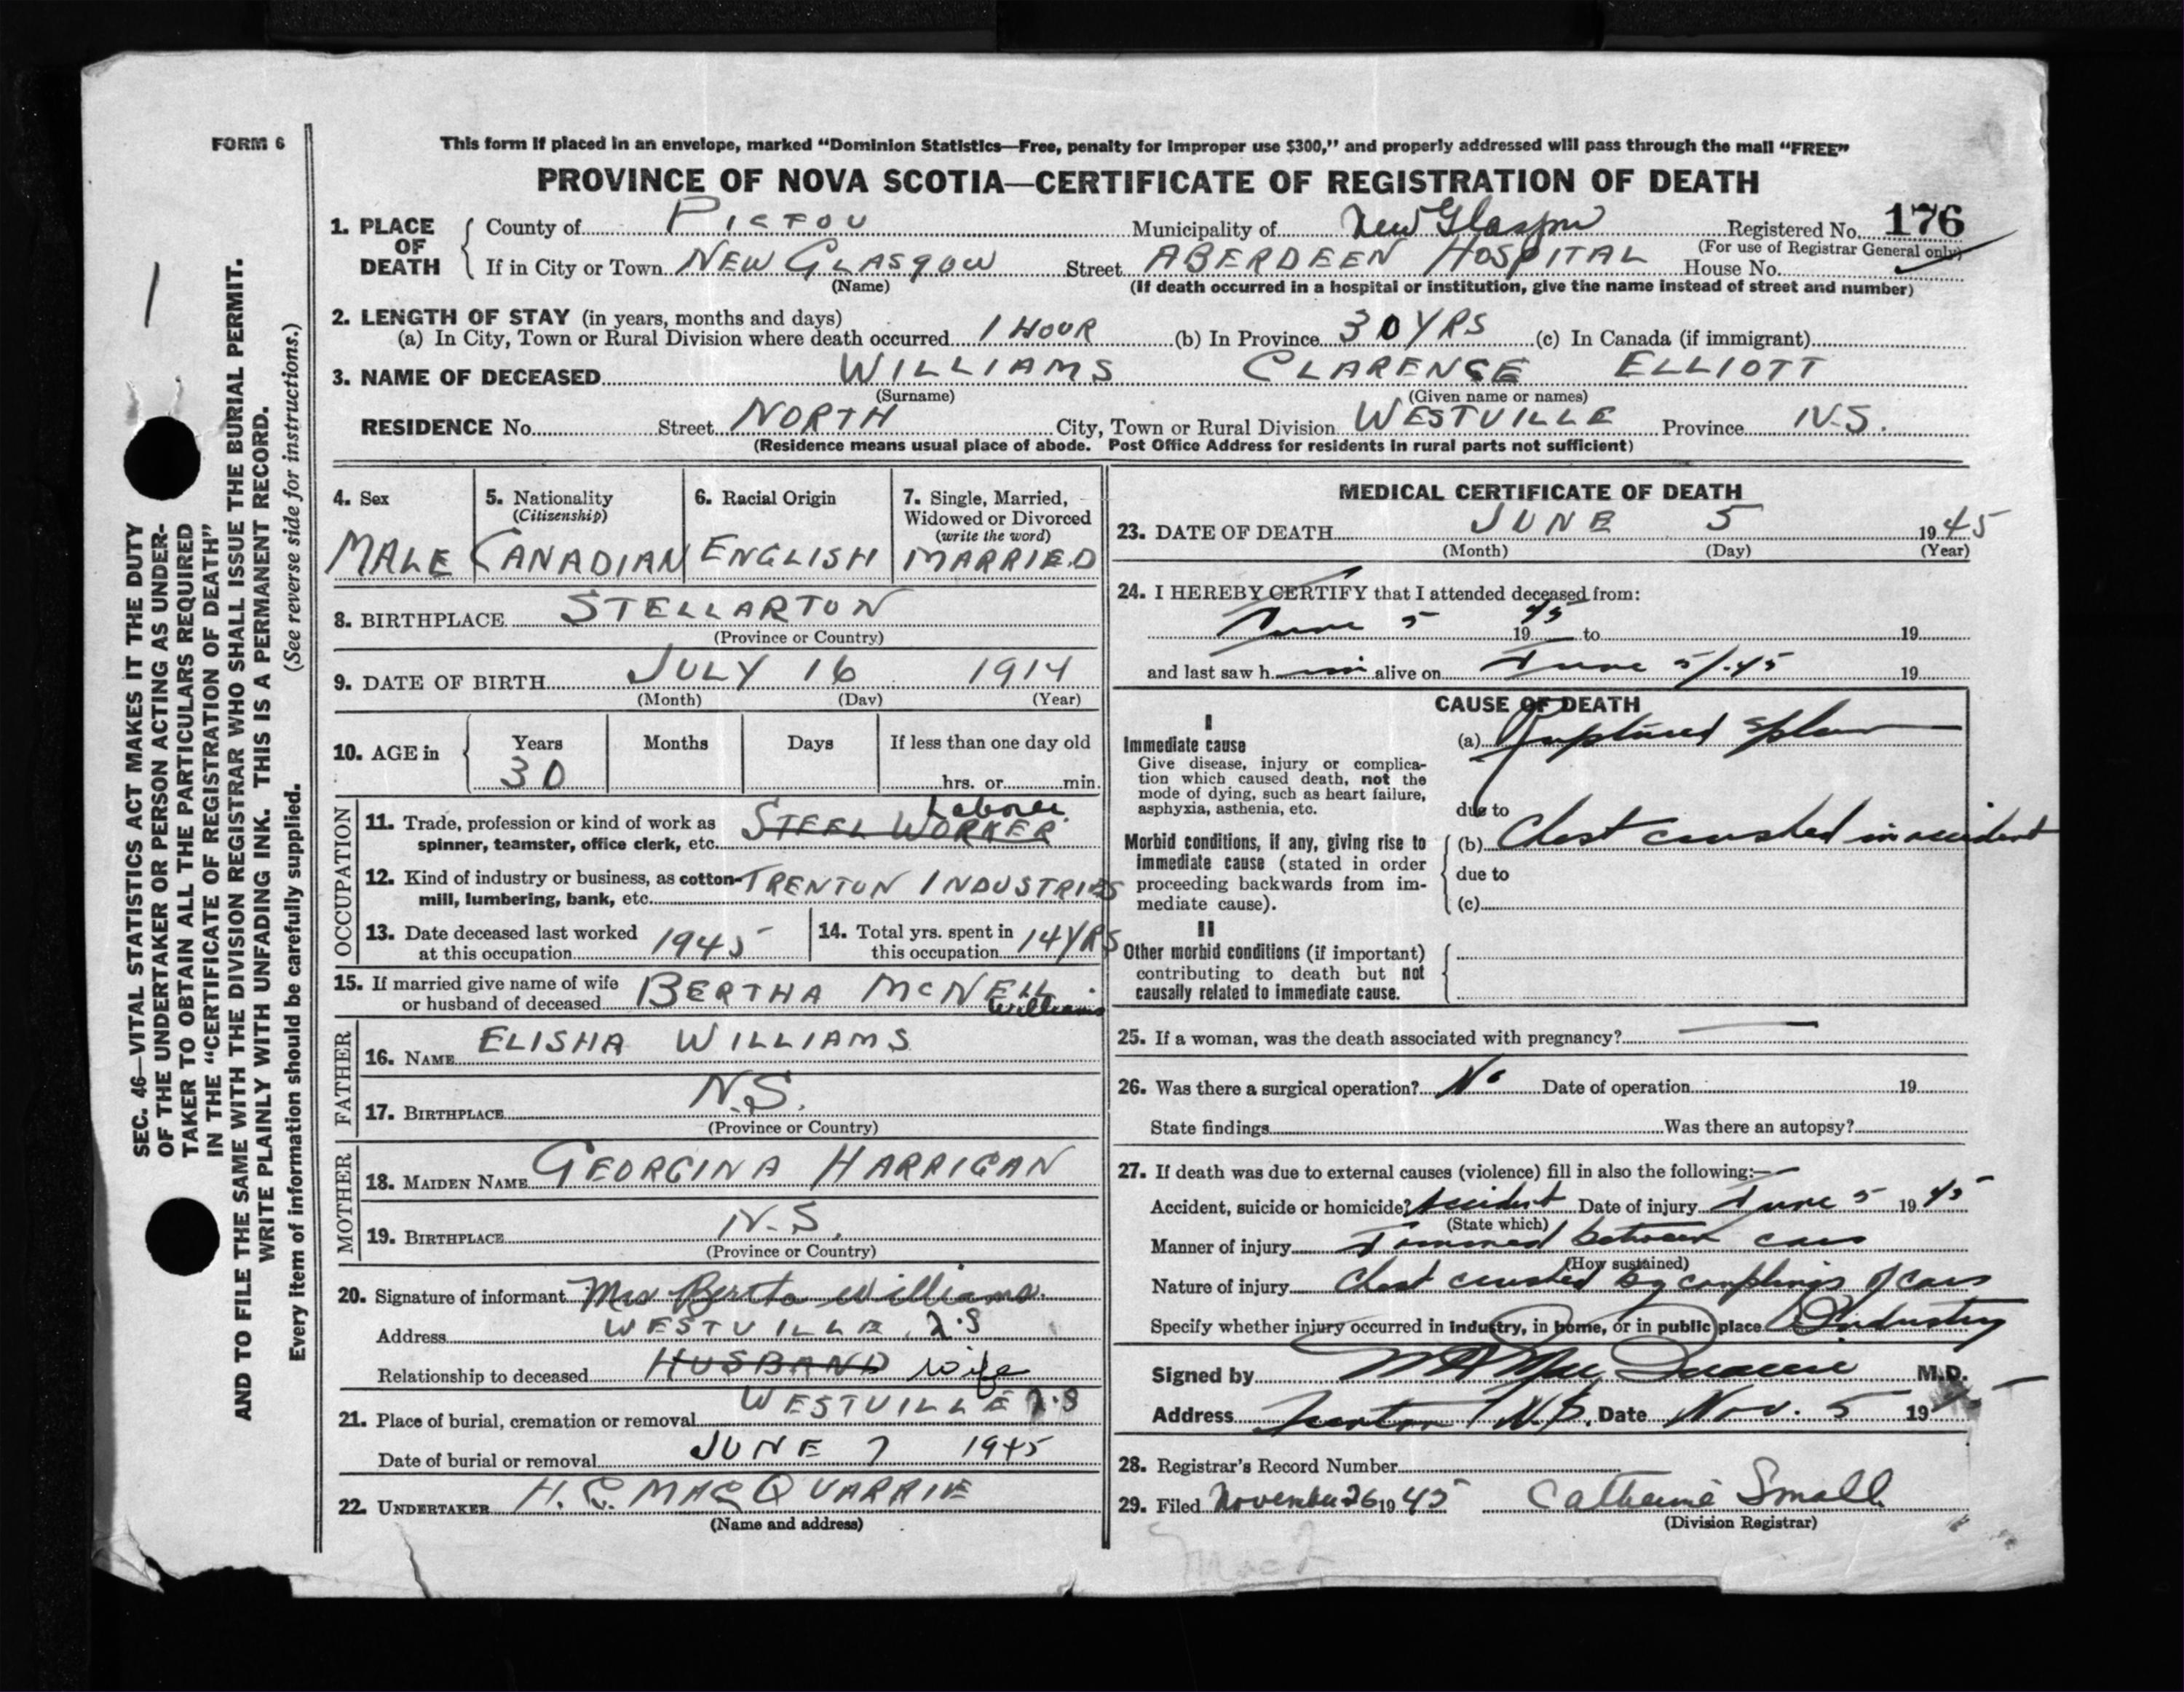 FORM 6
This form if placed in an envelope, marked "Dominion Statistics—Free, penalty for improper use $300," and properly addressed will pass through the mail "FREE"
PROVINCE OF NOVA SCOTIA—CERTIFICATE OF REGISTRATION OF DEATH
1. PLACE OF DEATH County of PICTOU Municipality of New Glasgow Registered No. 176
(For use of Registrar General only)
If in City or Town NEW GLASGOW Street ABERDEEN HOSPITAL House No.
(Name) (If death occurred in a hospital or institution, give the name instead of street and number)
2. LENGTH OF STAY (in years, months and days)
(a) In City, Town or Rural Division where death occurred 1 HOUR (b) In Province 30 YRS (c) In Canada (if immigrant)
3. NAME OF DECEASED WILLIAMS CLARENCE ELLIOTT
(Surname) (Given name or names)
RESIDENCE No. Street NORTH City, Town or Rural Division WESTVILLE Province N.S.
(Residence means usual place of abode. Post Office Address for residents in rural parts not sufficient)
4. Sex MALE
5. Nationality (Citizenship) CANADIAN
6. Racial Origin ENGLISH
7. Single, Married, Widowed or Divorced (write the word) MARRIED
8. BIRTHPLACE STELLARTON
(Province or Country)
9. DATE OF BIRTH JULY 16 1914
(Month) (Day) (Year)
10. AGE in Years Months Days If less than one day old
30 hrs. or min.
OCCUPATION
11. Trade, profession or kind of work as spinner, teamster, office clerk, etc. STEEL WORKER Laborer
12. Kind of industry or business, as cotton-mill, lumbering, bank, etc. TRENTON INDUSTRIES
13. Date deceased last worked at this occupation 1945
14. Total yrs. spent in this occupation 14 YRS
15. If married give name of wife or husband of deceased BERTHA MCNEIL Williams
FATHER
16. NAME ELISHA WILLIAMS
17. BIRTHPLACE N.S.
(Province or Country)
MOTHER
18. MAIDEN NAME GEORGINA HARRIGAN
19. BIRTHPLACE N.S.
(Province or Country)
20. Signature of informant Mrs Berta Williams.
Address WESTVILLE N.S
Relationship to deceased HUSBAND wife
21. Place of burial, cremation or removal WESTVILLE N.S
Date of burial or removal JUNE 7 1945
22. UNDERTAKER H. C. MACQUARRIE
(Name and address)
MEDICAL CERTIFICATE OF DEATH
23. DATE OF DEATH JUNE 5 1945
(Month) (Day) (Year)
24. I HEREBY CERTIFY that I attended deceased from:
June 5 1945 to 19
and last saw h im alive on June 5/45 19
CAUSE OF DEATH
I
Immediate cause
Give disease, injury or complication which caused death, not the mode of dying, such as heart failure, asphyxia, asthenia, etc.
(a) Ruptured spleen
due to
Morbid conditions, if any, giving rise to immediate cause (stated in order proceeding backwards from immediate cause).
(b) Chest crushed in accident
due to
(c)
II
Other morbid conditions (if important) contributing to death but not causally related to immediate cause.
25. If a woman, was the death associated with pregnancy?
26. Was there a surgical operation? No Date of operation 19
State findings Was there an autopsy?
27. If death was due to external causes (violence) fill in also the following:—
Accident, suicide or homicide? Accident Date of injury June 5 1945
(State which)
Manner of injury Jammed between cars
(How sustained)
Nature of injury Chest crushed by couplings of cars
Specify whether injury occurred in industry, in home, or in public place Industry
Signed by Mac Quarrie M.D.
Address Trenton N.S. Date Nov. 5 19
28. Registrar's Record Number
29. Filed November 26 1945 Catherine Small
(Division Registrar)
SEC. 46—VITAL STATISTICS ACT MAKES IT THE DUTY
OF THE UNDERTAKER OR PERSON ACTING AS UNDER-
TAKER TO OBTAIN ALL THE PARTICULARS REQUIRED
IN THE "CERTIFICATE OF REGISTRATION OF DEATH"
AND TO FILE THE SAME WITH THE DIVISION REGISTRAR WHO SHALL ISSUE THE BURIAL PERMIT.
WRITE PLAINLY WITH UNFADING INK. THIS IS A PERMANENT RECORD.
Every item of information should be carefully supplied. (See reverse side for instructions.)